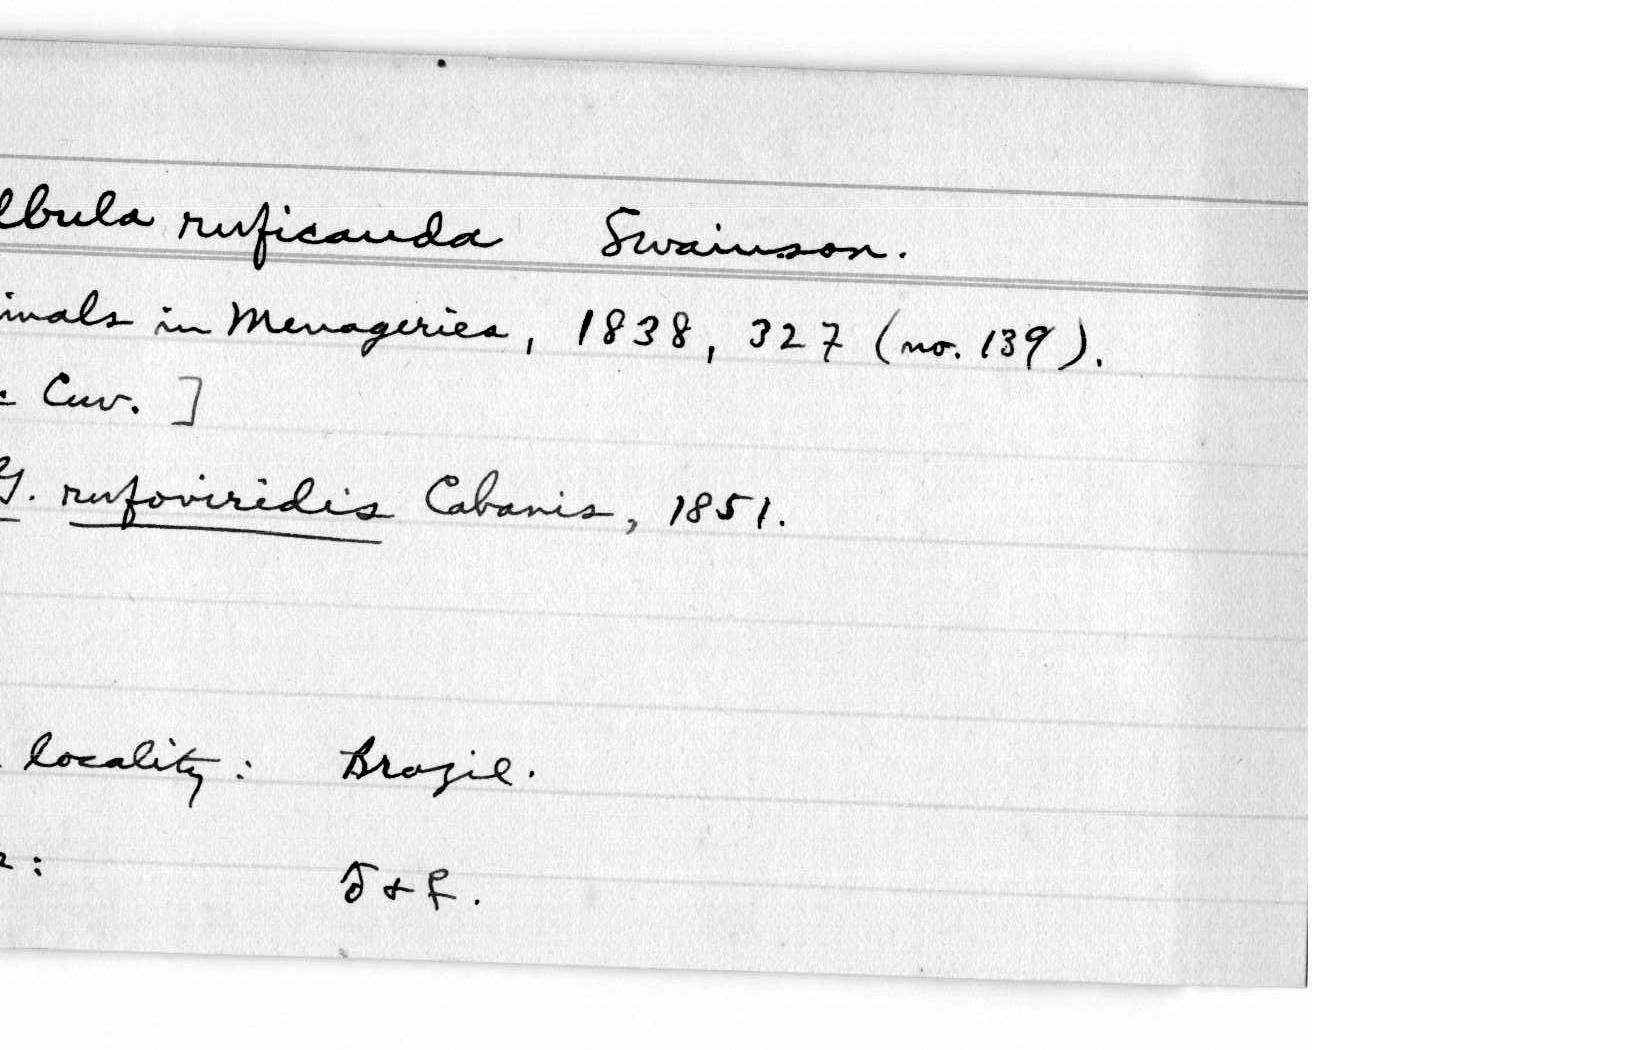 lbula ruficauda Swainson.
imals in Menageries, 1838, 327 (no. 139).
Cuv. ]
G. rufoviridis Cabanis, 1851.
locality: Brazil.
: ♂ & ♀.